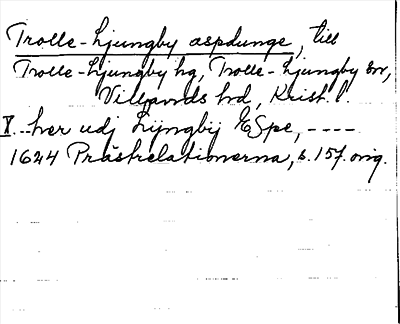 Trolle-Ljungby aspdunge, till
Trolle-Ljungby hg, Trolle-Ljungby sn,
Villands hd, Krist. l.
X...her udj Lijngbij ESpe, ----
1624 Prästrelationerna, s. 157. orig.